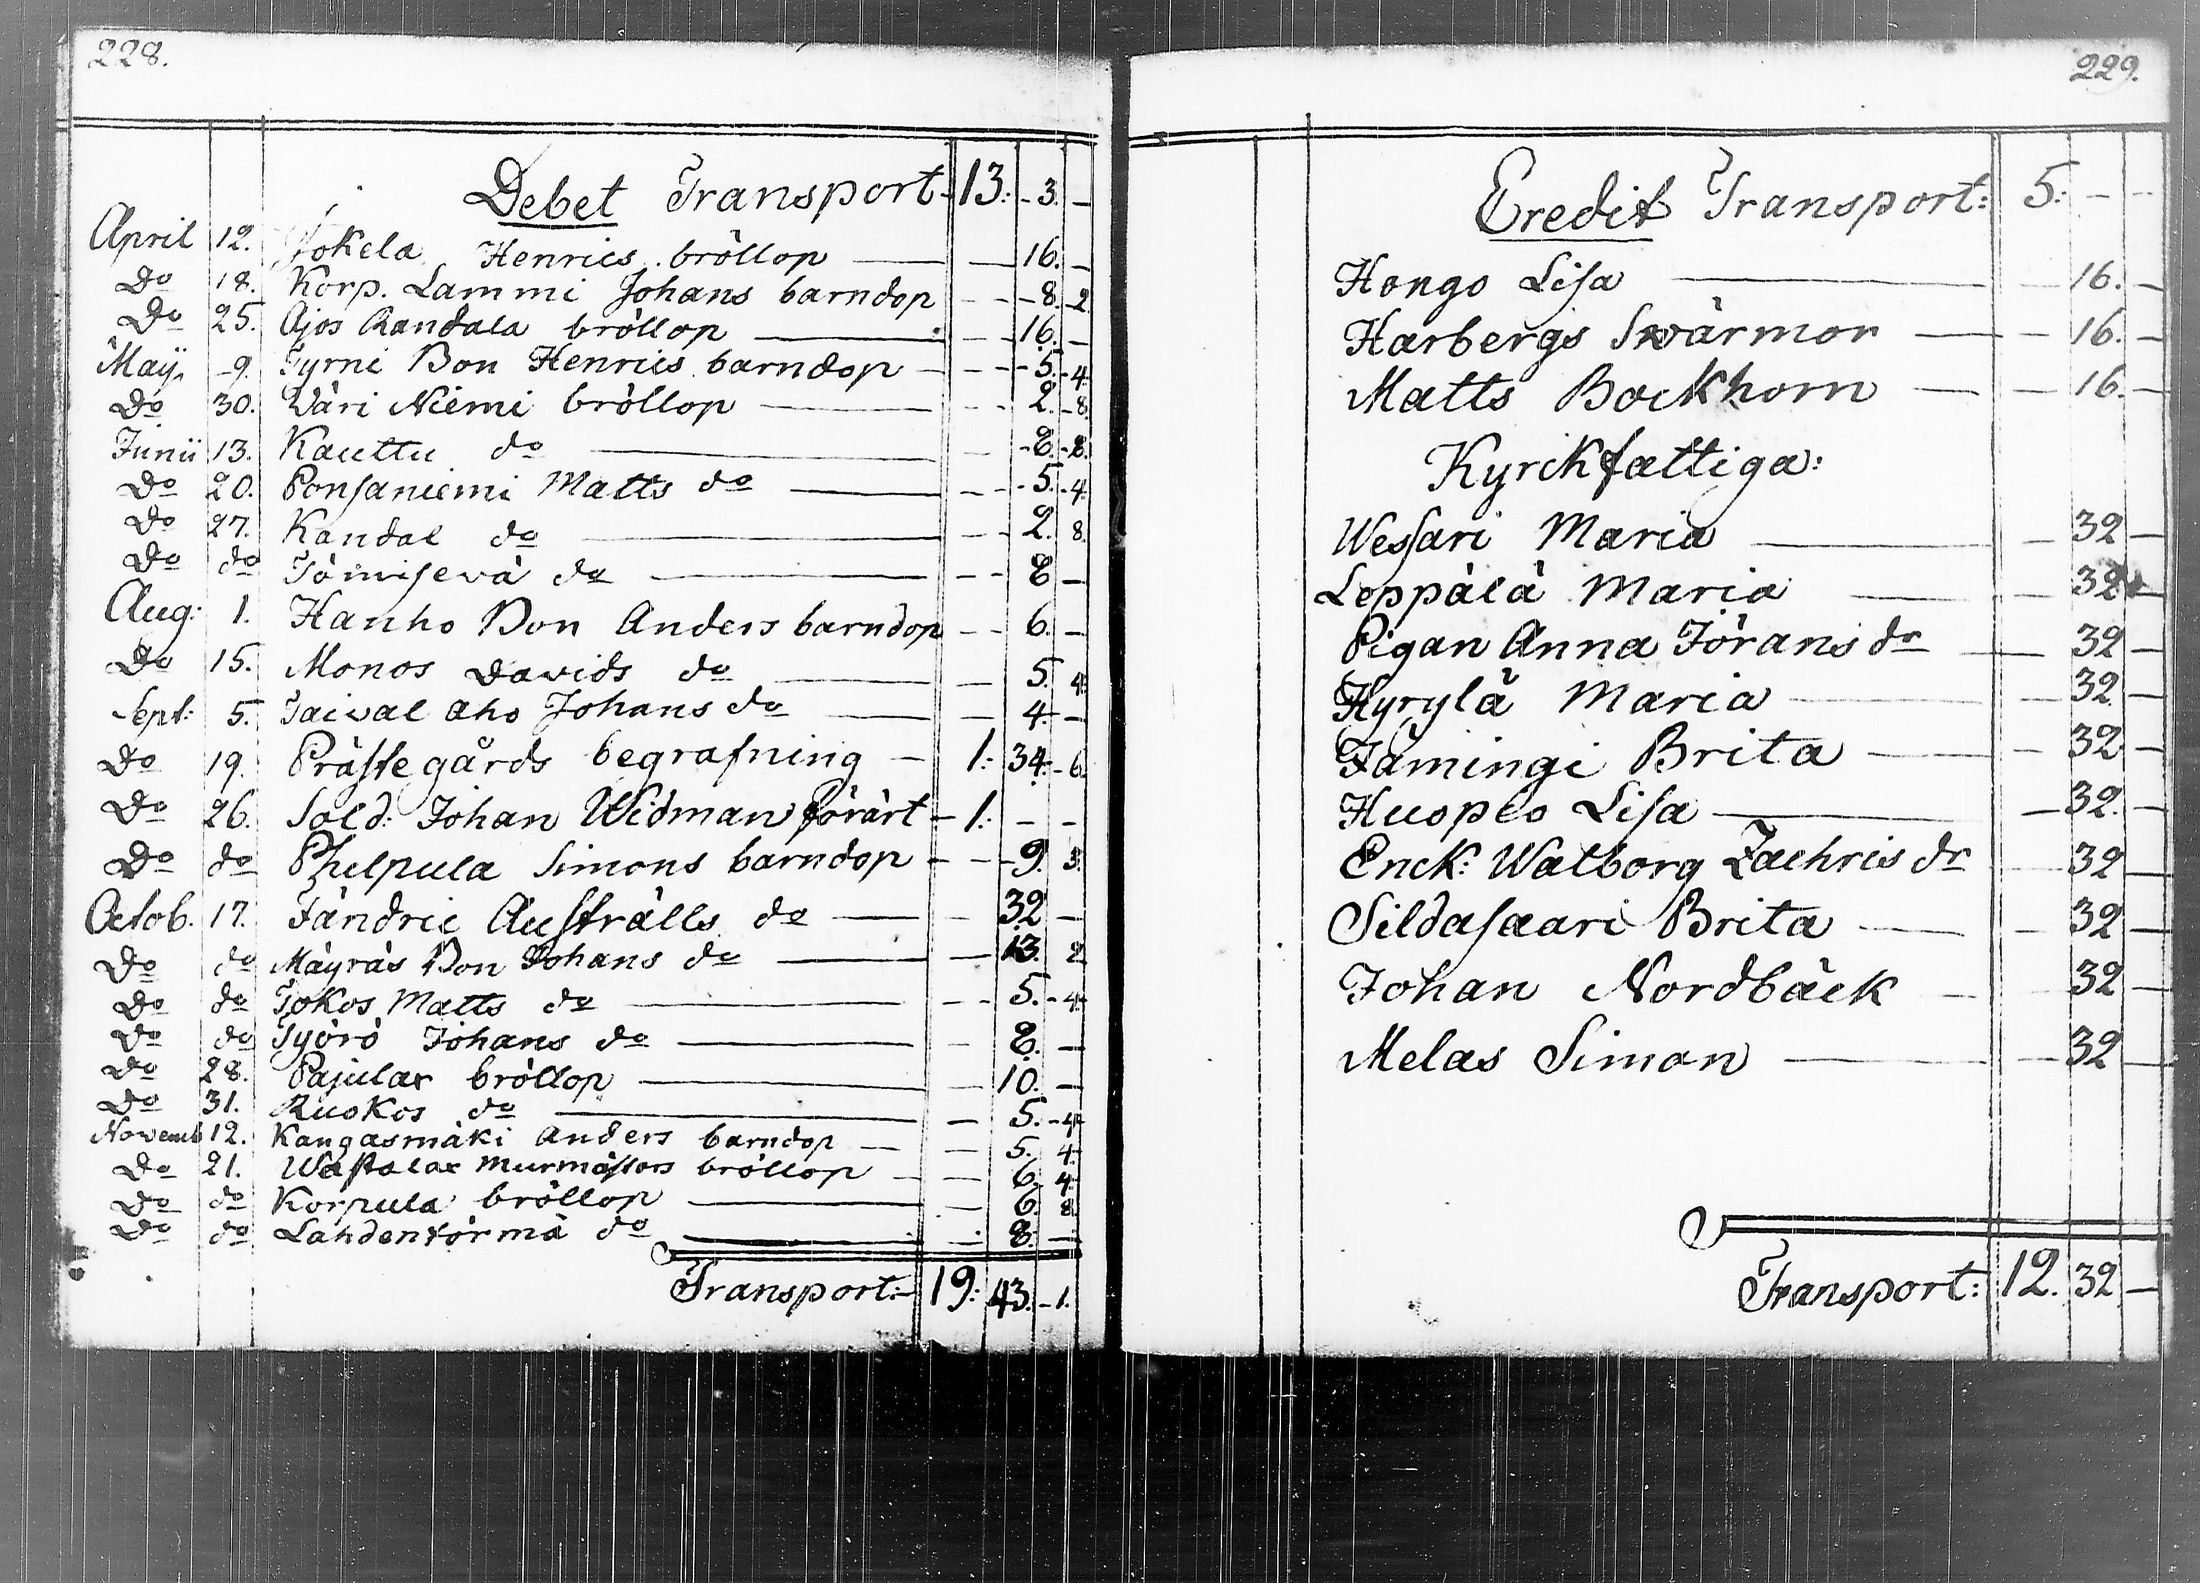 228.
Debet Transport 13: - 3. -
April 12. Jokela Henrics bröllop — — 16. -
Do 18. Korp. Lammi Johans barndop - - 8. -2
Do 25. Ajos Randala bröllop — - - 16. -
Maij 9. Tyrni Bon Henrics barndop - - - 5. -4.
Do 30. Wäri Niemi bröllop — - - 2. -8.
Junii 13. Kauttu do — - 8. -8.
Do 20. Ponsaniemi Matts do — - - 5. -4.
Do 27. Kandal do — - - 2. 8.
Do do Tömisevä do — - - 8 -
Aug: 1. Hanho Bon Anders barndop - - 6. -
Do 15. Monos Davids do — — 5. 4.
Sept: 5. Taival aho Johans do — — 4. -
Do 19. Prästegårds begrafning — 1: 34: -6.
Do 26. Sold: Johan Widman förärt - 1: - -
Do do Phelpula Simons barndop - - - 9. 3.
Octob. 17. Fändric Austrälls do — - 32 -
Do do Mäyräs Bon Johans do — — 13. 2
Do do Jokos Matts do — - - 5. -4.
Do do Työrö Johans do — - 8. -
Do 28. Pajular bröllop — — 10. -
Do 31. Ruokos do — — 5. -4.
Novemb 12. Kangasmäki Anders barndop — — 5. 4.
Do 21. Wastalax Murmästars bröllop — — 6. 4.
Do do Korpula bröllop — — 6. 8.
Do do Lahdentörmä do — — 8. —
Transport: 19: 43. -1.
229.
Credit Transport: 5: - -
Hongo Lisa — — 16. -
Harbergs Swärmor — — 16. -
Matts Bockhorn — — 16. -
Kyrckfattiga:
Wessari Maria — — 32 —
Leppälä Maria — — 32 —
Pigan Anna Jörans dr — 32 —
Hyrylä Maria — — 32 —
Jämingi Brita — — 32 —
Huopio Lisa — — 32. —
Enck: Walborg Zachris dr — 32 —
Sildasaari Brita — - 32 —
Johan Nordbäck — 32 —
Melas Simon — — 32 —
Transport: 12. 32 —